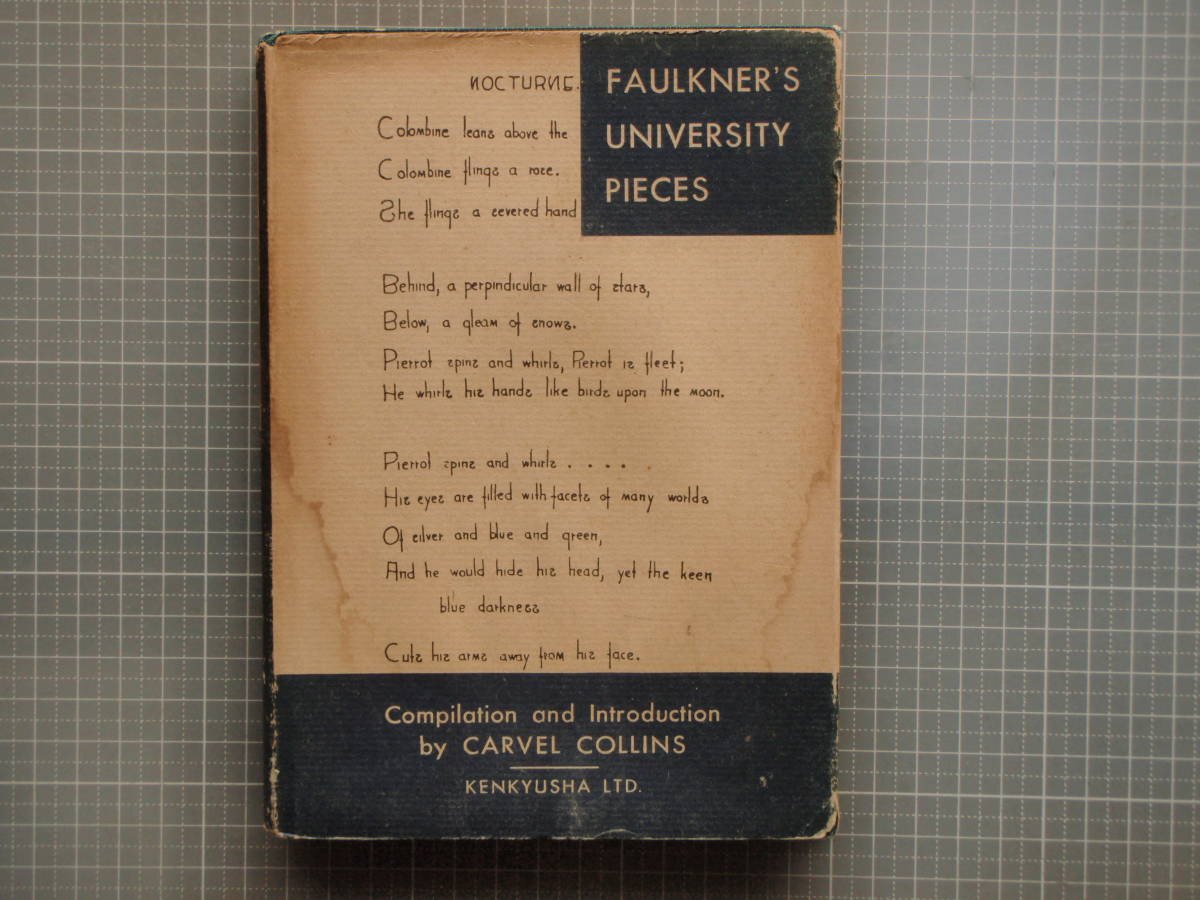 NOCTURNE.
FAULKNER'S
UNIVERSITY
PIECES
Colombine leans above the
Colombine flings a rose.
She flings a severed hand
Behind, a perpindicular wall of stars,
Below, a gleam of snows.
Pierrot spins and whirls, Pierrot is fleet;
He whirls his hands like birds upon the moon.
Pierrot spins and whirls . . . . .
His eyes are filled with facets of many worlds
Of silver and blue and green,
And he would hide his head, yet the keen
blue darkness
Cuts his arms away from his face.
Compilation and Introduction
by CARVEL COLLINS
KENKYUSHA LTD.